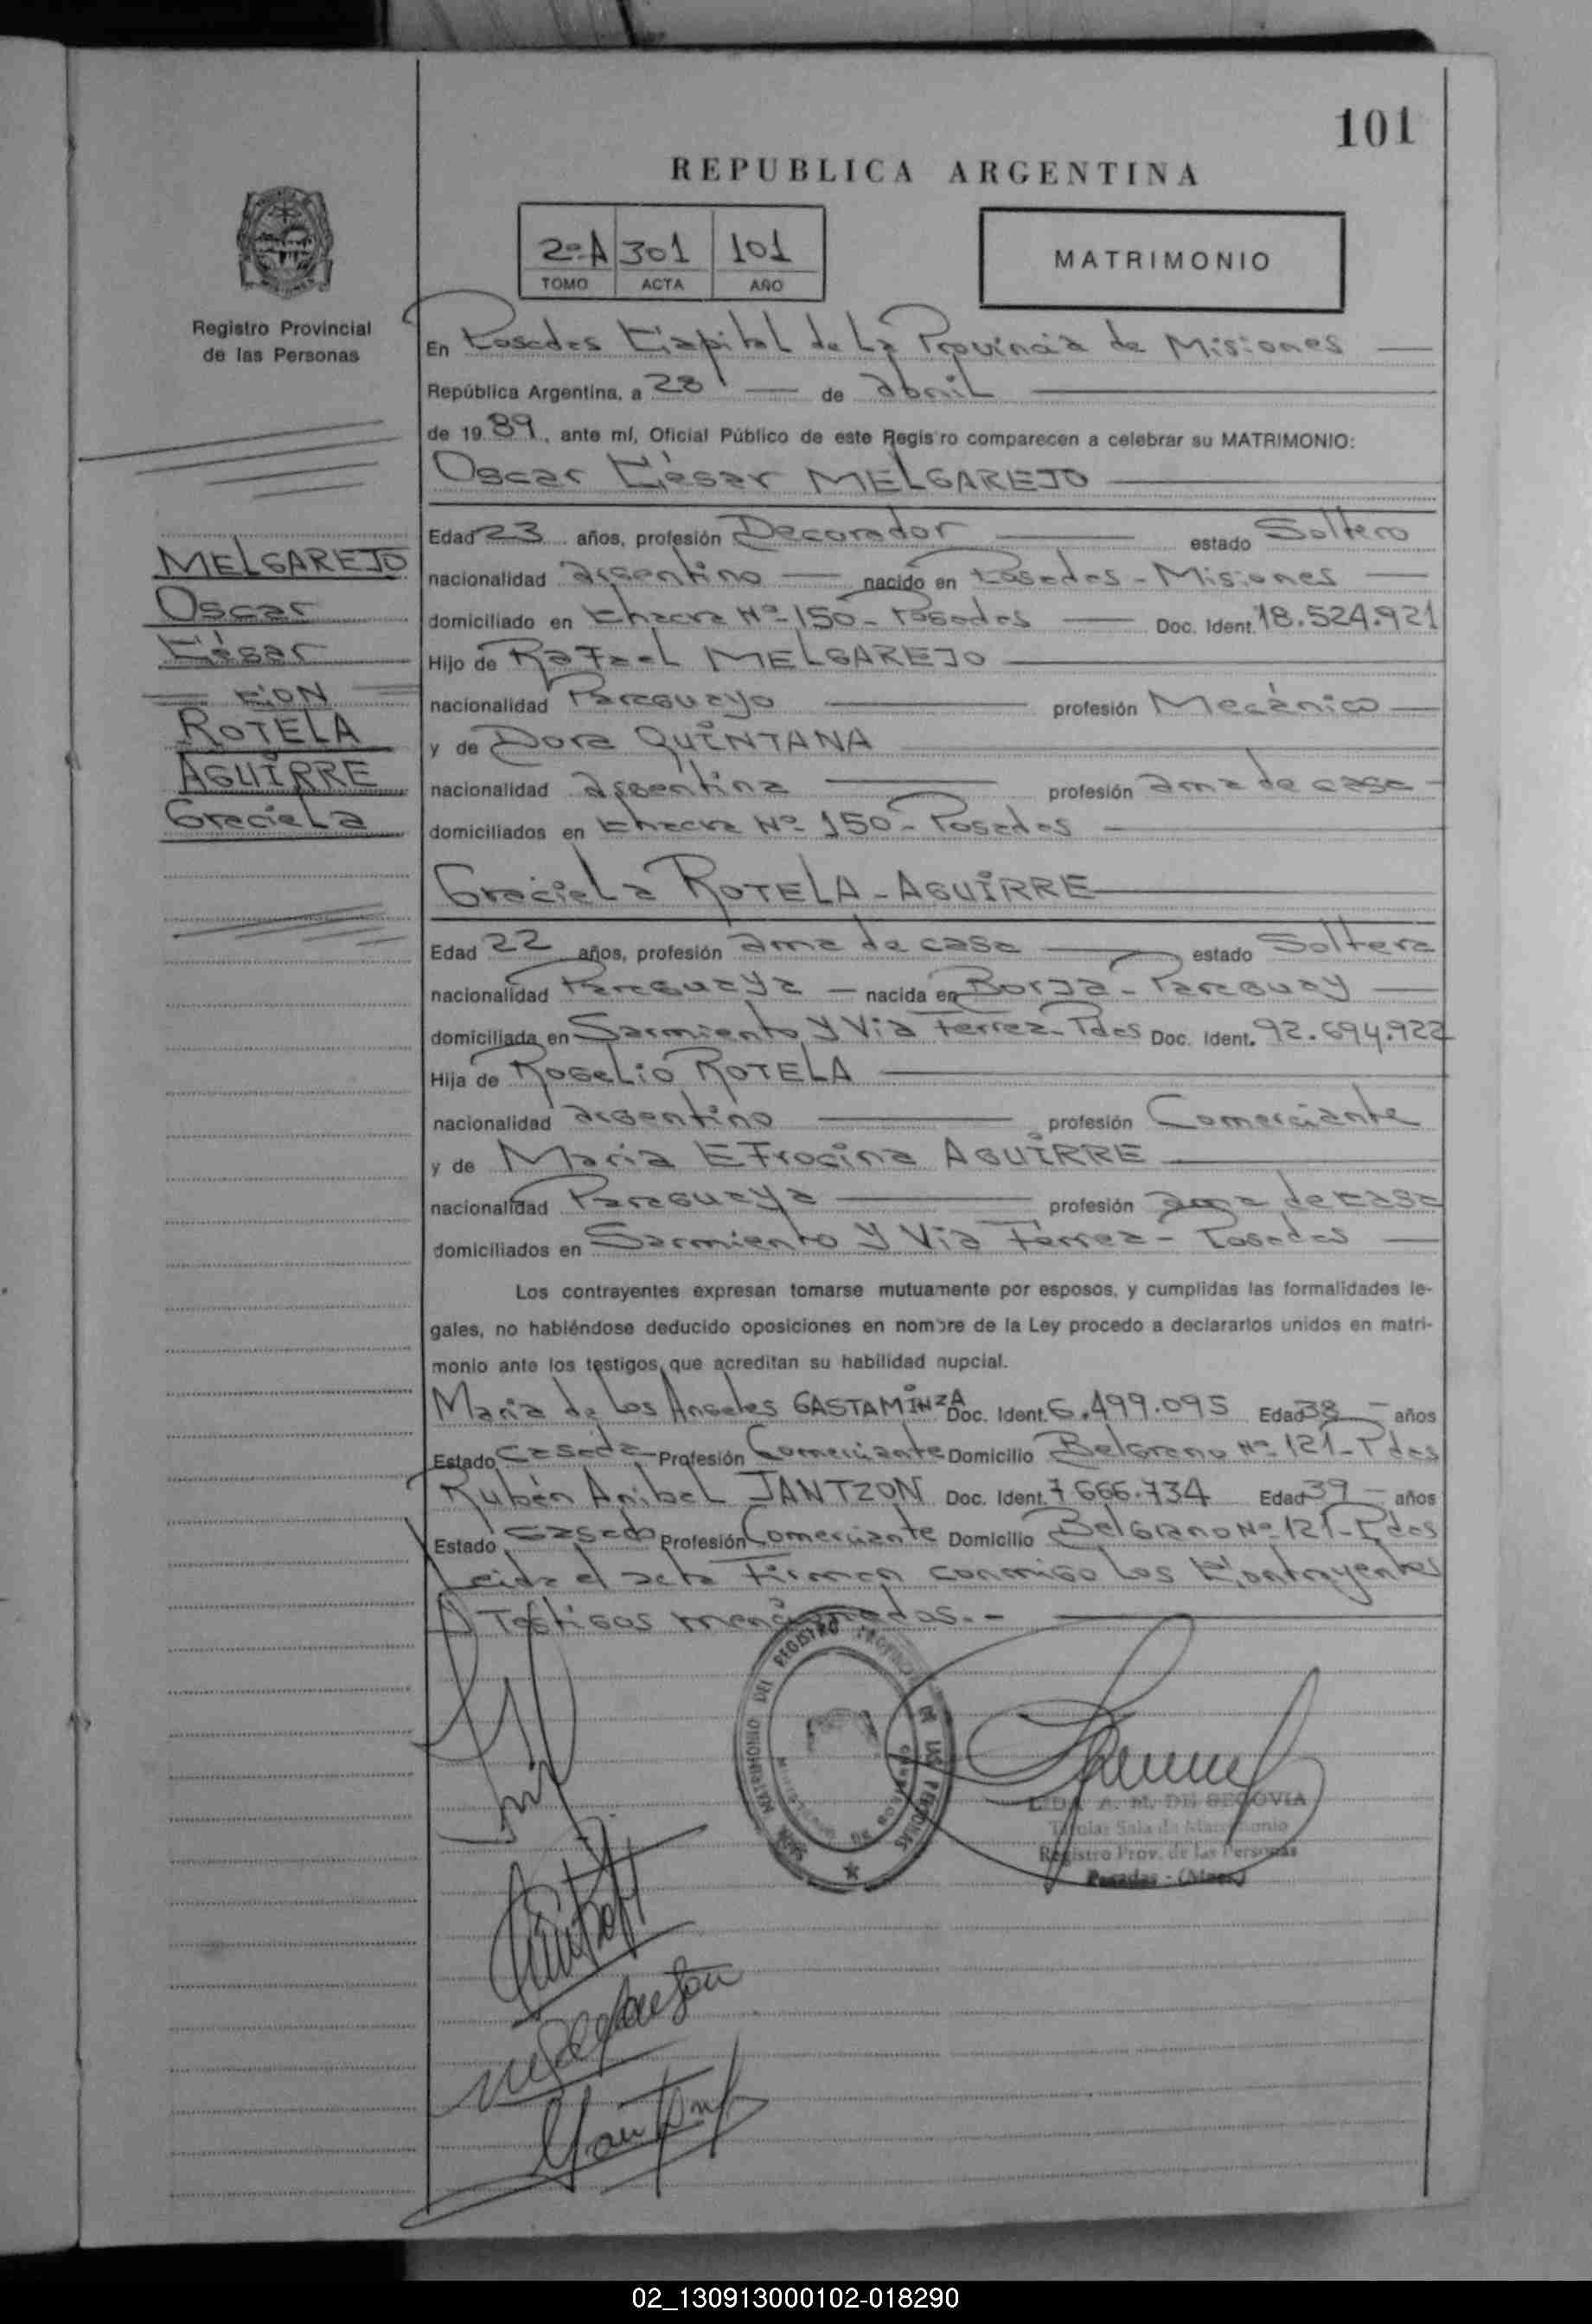 101
REPUBLICA ARGENTINA
2º A 301 101
TOMO ACTA AÑO
MATRIMONIO
Registro Provincial
de las Personas
MELGAREJO
Oscar
César
CON
ROTELA
AGUIRRE
Graciela
En Posadas Capital de La Provincia de Misiones
República Argentina, a 28 de abril
de 1989, ante mí, Oficial Público de este Registro comparecen a celebrar su MATRIMONIO:
Oscar César MELGAREJO
Edad 23 años, profesión Decorador estado Soltero
nacionalidad argentino nacido en Posadas - Misiones
domiciliado en Chacra Nº 150 - Posadas Doc. Ident. 18.524.921
Hijo de Rafael MELGAREJO
nacionalidad Paraguayo profesión Mecánico
y de Dora QUINTANA
nacionalidad argentina profesión ama de casa
domiciliados en Chacra Nº 150 - Posadas
Graciela ROTELA - AGUIRRE
Edad 22 años, profesión ama de casa estado Soltera
nacionalidad Paraguaya nacida en Borja - Paraguay
domiciliada en Sarmiento y Via Ferrea - Pdas Doc. Ident. 92.694.922
Hija de Rogelio ROTELA
nacionalidad argentino profesión Comerciante
y de Maria Efrocina AGUIRRE
nacionalidad Paraguaya profesión ama de casa
domiciliados en Sarmiento y Via Férrea - Posadas
Los contrayentes expresan tomarse mutuamente por esposos, y cumplidas las formalidades le-
gales, no habiéndose deducido oposiciones en nombre de la Ley procedo a declararlos unidos en matri-
monio ante los testigos que acreditan su habilidad nupcial.
Maria de Los Angeles GASTAMINZA Doc. Ident. 6.499.095 Edad 38 años
Estado Casada Profesión Comerciante Domicilio Belgrano Nº 121 - Pdas
Rubén Anibal JANTZON Doc. Ident. 7.666.734 Edad 39 años
Estado Casado Profesión Comerciante Domicilio Belgrano Nº 121 - Pdas
Leida el acta Firman conmigo Los Contrayentes
y Testigos mencionados.-
MATRIMONIO DEL REGISTRO PROVINCIAL DE LAS PERSONAS
LIDA A. M. DE SEGOVIA
Titular Sala de Matrimonio
Registro Prov. de las Personas
Posadas - (Mnes.)
02_130913000102-018290